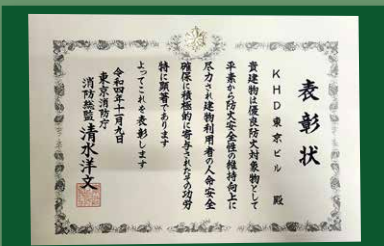 表彰状
KHD東京ビル 殿
貴建物は優良防火対象物として
平素から防火安全性の維持向上に
尽力され建物利用者の人命安全
確保に積極的に寄与されたその功労
特に顕著であります
よってこれを表彰します
令和四年十一月九日
東京消防庁
消防総監 清水洋文